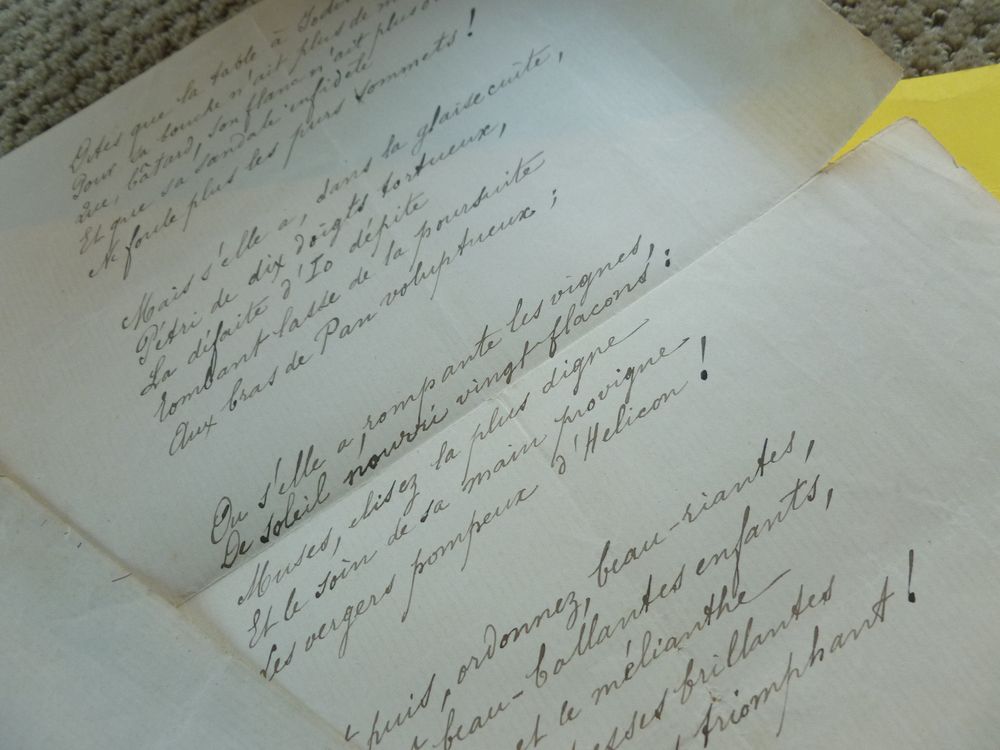 Dites que la table à
Pour sa bouche n'ait plus de
Que, bâtard, son flanc n'ait plus
Et que sa sandale infidèle
Ne foule plus les purs sommets!
Mais s'elle a, dans la glaise cuite,
Pétri de dix doigts tortueux,
La défaite d'Io dépite
Tombant lasse de la poursuite
Aux bras de Pan voluptueux;
Ou s'elle a, rompante les vignes,
De soleil nourri vingt flacons:
Muses, elisez la plus digne
Et le soin de sa main provigne
Les vergers pompeux d'Helicon!
puis, ordonnez, beau-riantes,
beau-ballantes enfants,
et le mélianthe
esses brillantes
triomphant!